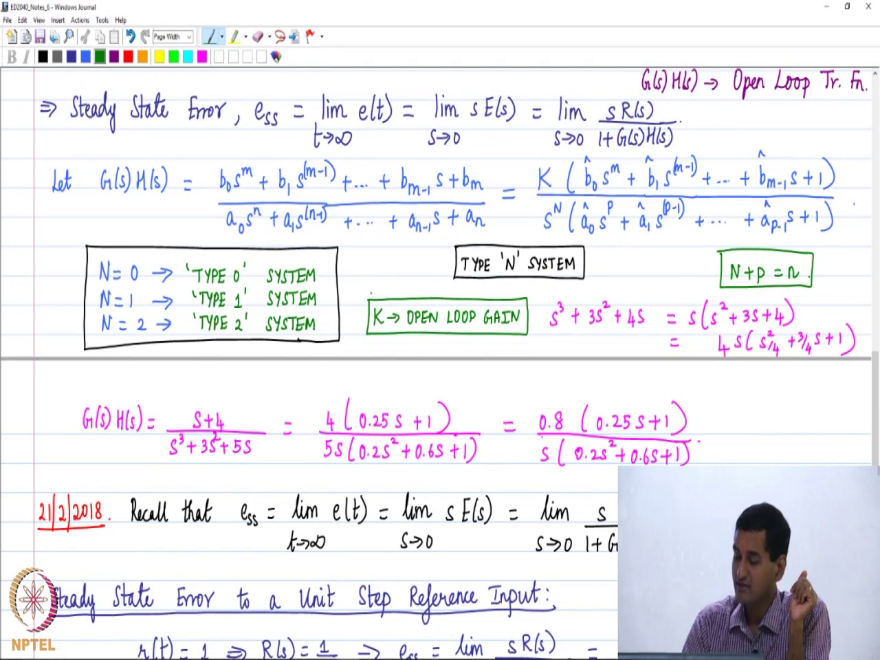 ED2040_Notes_6 - Windows Journal
File Edit View Insert Actions Tools Help
Page Width
B I
G(s) H(s) → Open Loop Tr. Fn.
⇒ Steady State Error, e_ss = lim_{t→∞} e(t) = lim_{s→0} s E(s) = lim_{s→0} s R(s) / (1 + G(s)H(s))
Let G(s) H(s) = (b₀s^m + b₁s^(m-1) + ... + b_{m-1}s + b_m) / (a₀s^n + a₁s^(n-1) + ... + a_{n-1}s + a_n) = K (b̂₀s^m + b̂₁s^(m-1) + ... + b̂_{m-1}s + 1) / (s^N (â₀s^p + â₁s^(p-1) + ... + â_{p-1}s + 1)).
N = 0 → 'TYPE 0' SYSTEM
N = 1 → 'TYPE 1' SYSTEM
N = 2 → 'TYPE 2' SYSTEM
TYPE 'N' SYSTEM
N + p = n.
K → OPEN LOOP GAIN
s³ + 3s² + 4s = s(s² + 3s + 4)
= 4s(s²/4 + 3/4 s + 1)
G(s) H(s) = (s+4) / (s³ + 3s² + 5s) = 4(0.25s + 1) / (5s(0.2s² + 0.6s + 1)) = 0.8 (0.25s + 1) / (s(0.2s² + 0.6s + 1)).
21/2/2018. Recall that e_ss = lim_{t→∞} e(t) = lim_{s→0} s E(s) = lim_{s→0} s / 1 + G
Steady State Error to a Unit Step Reference Input:
r(t) = 1 ⇒ R(s) = 1 ⇒ e_ss = lim sR(s) =
NPTEL